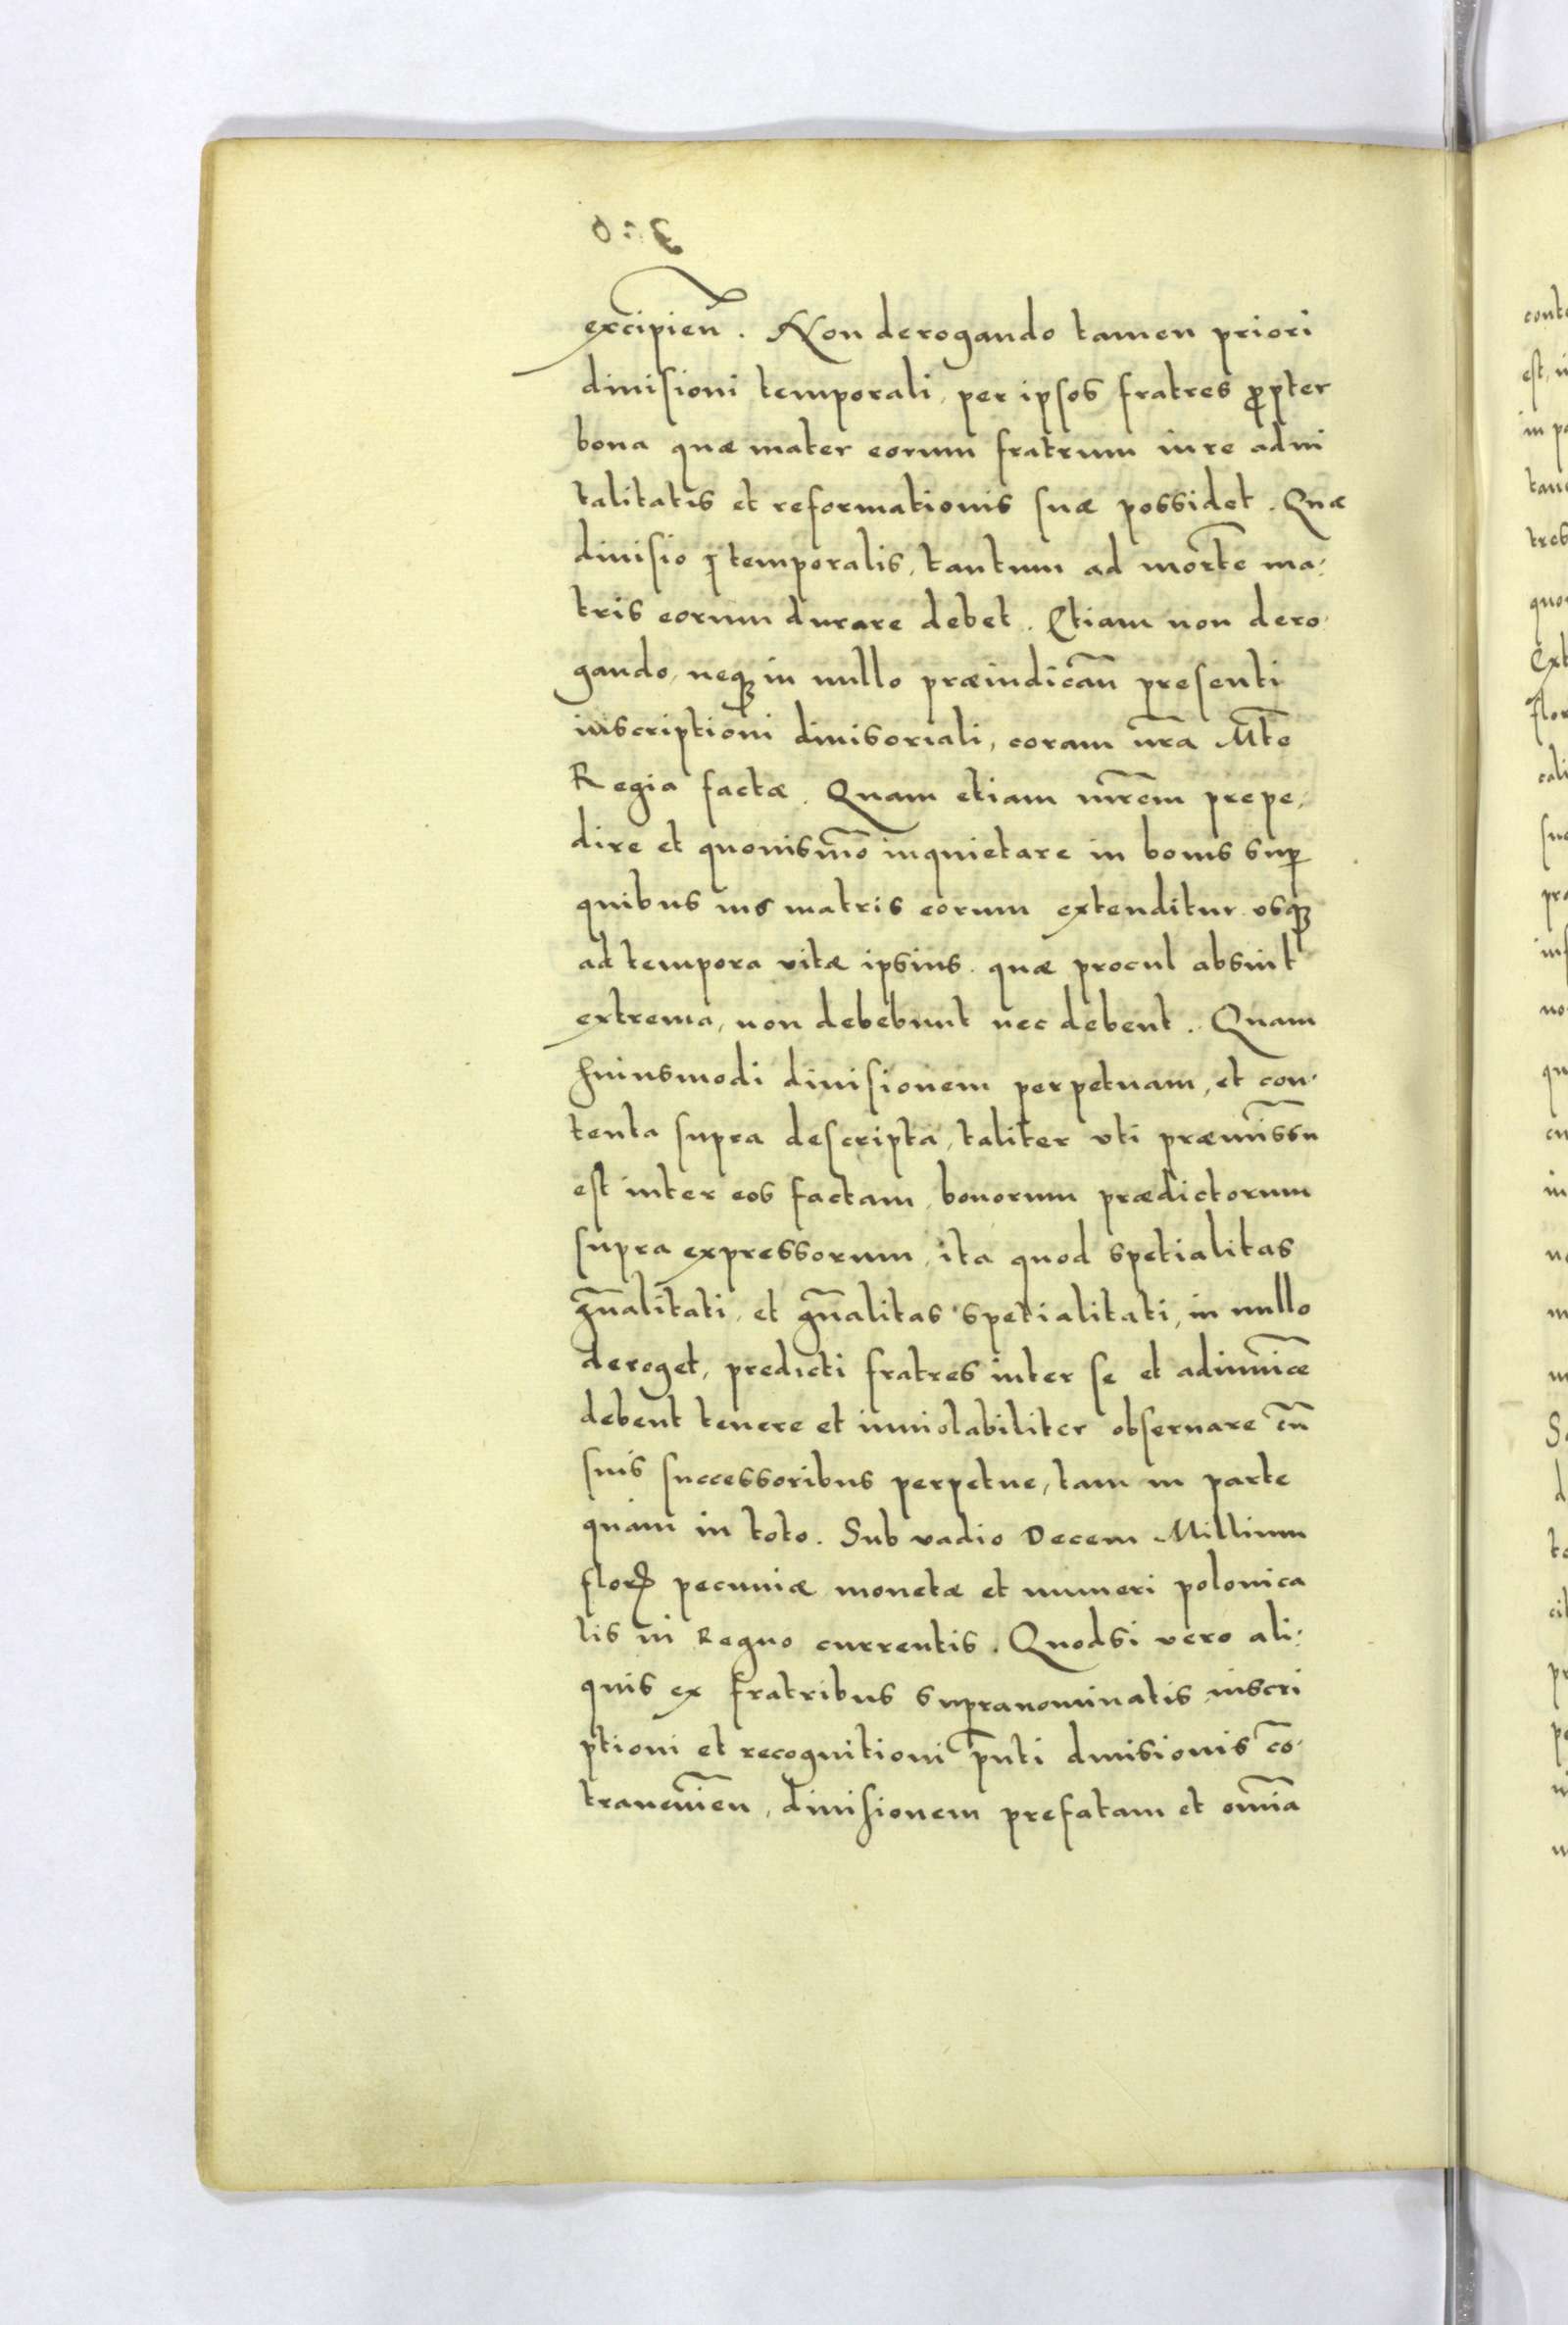 excipień. Non derogando tamen priori
diuisioni temporali, per ipsos fratres ꝓpter
bona quæ mater eorum fratrum iure adui
talitatis et reformationis suæ possidet. Quæ
diuisio temporalis, tantum ad mortē ma:
tris eorum durare debet. Etiam non dero:
gando, neqꝫ in nullo præiudicań presenti
inscriptioni diuisoriali, coram nr̃a Mt̃e
Regia factæ. Quam etiam mr̃em prepe:
dire et quouismõ inquietare in bonis suꝑ
quibus ius matris eorum extenditur vsqꝫ
ad tempora vitæ ipsius. quæ procul absint
extrema, non debebunt nec debent. Quam
huiusmodi diuisionem perpetuam, et con:
tenta supra descripta, taliter vti præmissū
est inter eos factam, bonorum prædictorum
supra expressorum, ita quod spetialitas
gñalitati, et gñalitas spetialitati, in nullo
deroget, predicti fratres inter se et adinuicē
debent tenere et inuiolabiliter obseruare cū
suis successoribus perpetue, tam in parte
quam in toto. Sub vadio Decem Millium
florꝭ pecuniæ monetæ et numeri polonica
lis in Regno currentis. Quodsi vero ali:
quis ex fratribus supranominatis inscri
ptioni et recognitioni pñti diuisionis cõ:
traueniēn, diuisionem prefatam et om̃ia